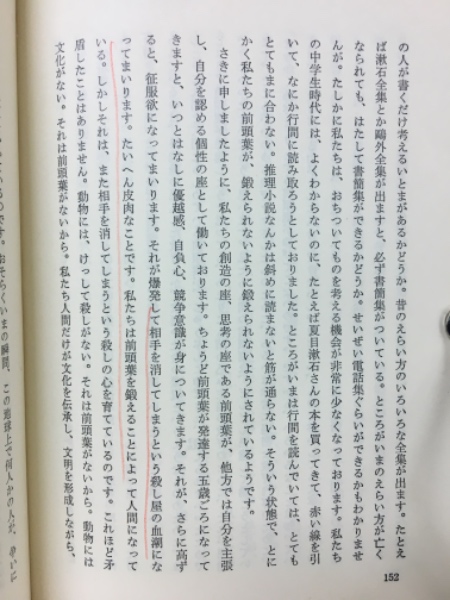 の人が書くだけ考えるいとまがあるかどうか。昔のえらい方のいろいろな全集が出ます。たとえ
ば漱石全集とか鷗外全集が出ますと、必ず書簡集がついている。ところがいまのえらい方が亡く
なられても、はたして書簡集ができるかどうか。せいぜい電話集ぐらいができるかもわかりませ
んが。たしかに私たちは、おちついてものを考える機会が非常に少なくなっております。私たち
の中学生時代には、よくわからないのに、たとえば夏目漱石さんの本を買ってきて、赤い線を引
いて、なにか行間に読み取ろうとしておりました。ところがいまは行間を読んでいては、とても
とてもまに合わない。推理小説なんかは斜めに読まないと筋が通らない。そういう状態で、とに
かく私たちの前頭葉が、鍛えられないように鍛えられないようにされているようです。
さきに申しましたように、私たちの創造の座、思考の座である前頭葉が、他方では自分を主張
し、自分を認める個性の座として働いております。ちょうど前頭葉が発達する五歳ごろになって
きますと、いつとはなしに優越感、自負心、競争意識が身についてきます。それが、さらに高ず
ると、征服欲になってまいります。それが爆発して相手を消してしまうという殺し屋の血潮にな
ってまいります。たいへん皮肉なことです。私たちは前頭葉を鍛えることによって人間になって
いる。しかしそれは、また相手を消してしまうという殺しの心を育てているのです。これほど矛
盾したことはありません。動物には、けっして殺しがない。それは前頭葉がないから。動物には
文化がない。それは前頭葉がないから。私たち人間だけが文化を伝承し、文明を形成しながら、
152
いるのです。おそらくいまの瞬間、この地球上で何人かの人が、争いに